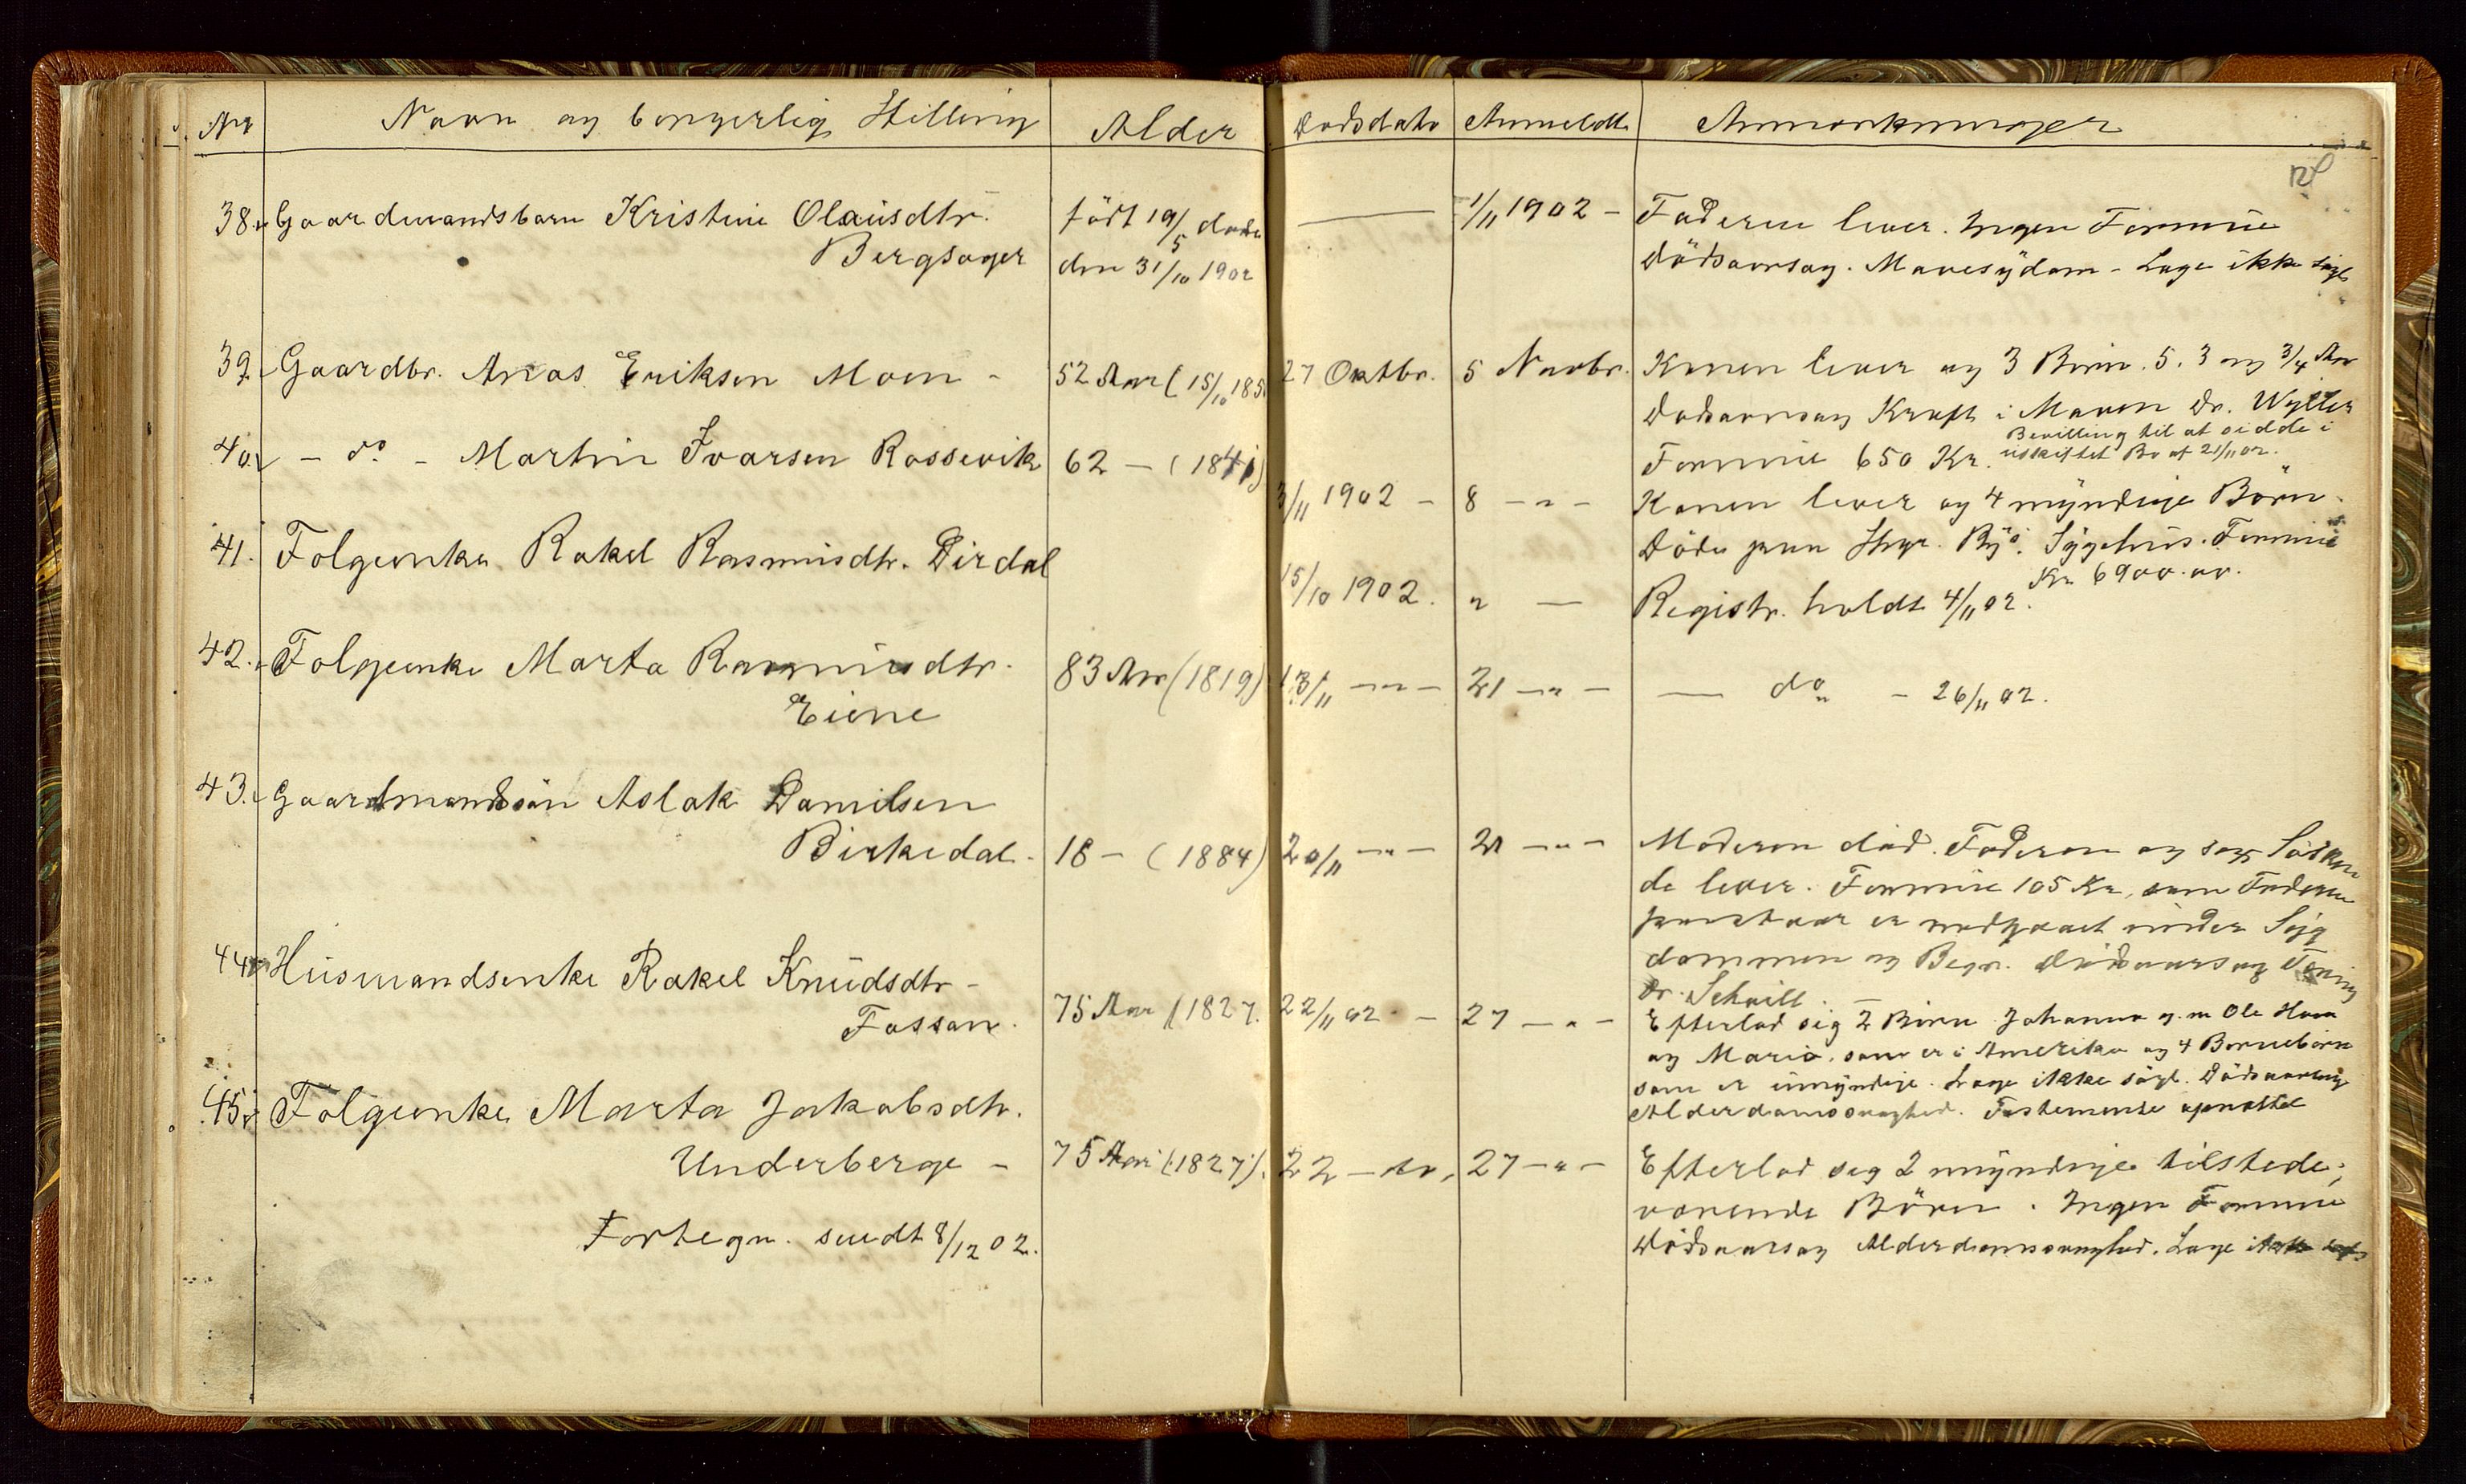 Nr Navn og borgerlig Stilling Alder Dødsdato Anmeldt Anmærkninger
38. Gaardmandsbarn Kristine Olausdtr. født 19/5 døde 1/11 1902 – Faderen lever. Ingen Formue
Bergsager den 31/10 1902 Dödsaarsag. Mavesÿdom – Læge ikke sögt
39. Gaardbr. Anas Eriksen Moen – 52 Aar (15/10 185 27 Oktbr. 5 Novbr. Konen lever og 3 Börn. 5. 3 og 3/4 Aar
Dødsaarsag Kræft i Maven Dr. Wyller
40. – do – Martin Ivarsen Rossevik 62 – (1841) Formue 650 Kr. Bevilling til at sidde i
uskiftet Bo af 21/11 02.
3/11 1902 – 8 – " – Konen lever og 4 mÿndige Börn.
41. Folgeenke Rakel Rasmusdtr. Dirdal Döde paa Stvgr. Bÿs Sÿgehus. Formue
Kr 6900.00.
15/10 1902. " — Registr. holdt 4/11 02.
42. Folgeenke Marta Rasmusdtr. 83 Aar (1819) 13/11 – " – 21 – " – — do – 26/11 02.
Eiene
43. Gaardmandssön Aslak Danielsen
Birkedal – 18 – (1884) 20/11 – " – 21 – " – Moderen död. Faderen og sex Södsken
de lever. Formue 105 Kr, som Faderen
paastaar er medgaaet under Sÿg
dommen og Begr. Dödsaarsag Tæring
Dr. Schvill.
44. Husmandsenke Rakel Knudsdtr –
Fossan. 75 Aar (1827. 22/11 02 – 27 – " – Efterlod sig 2 Börn Johanna g. m Ole Hæa
og Maria, som er i Amerika og 4 Börnebörn
som er umÿndige. Læge ikke sögt. Dödsaarsag
Alderdomssvaghed. Testemente oprettet
45. Folgeenke Marta Jakobsdtr.
Underberge – 75 Aar (1827). 22 – do, 27 – " – Efterlod sig 2 mÿndige tilstede-
værende Börn. Ingen Formue
Fortegn. sendt 8/12 02. Dödsaarsag Alderdomssvaghed. Læge ikke sögt